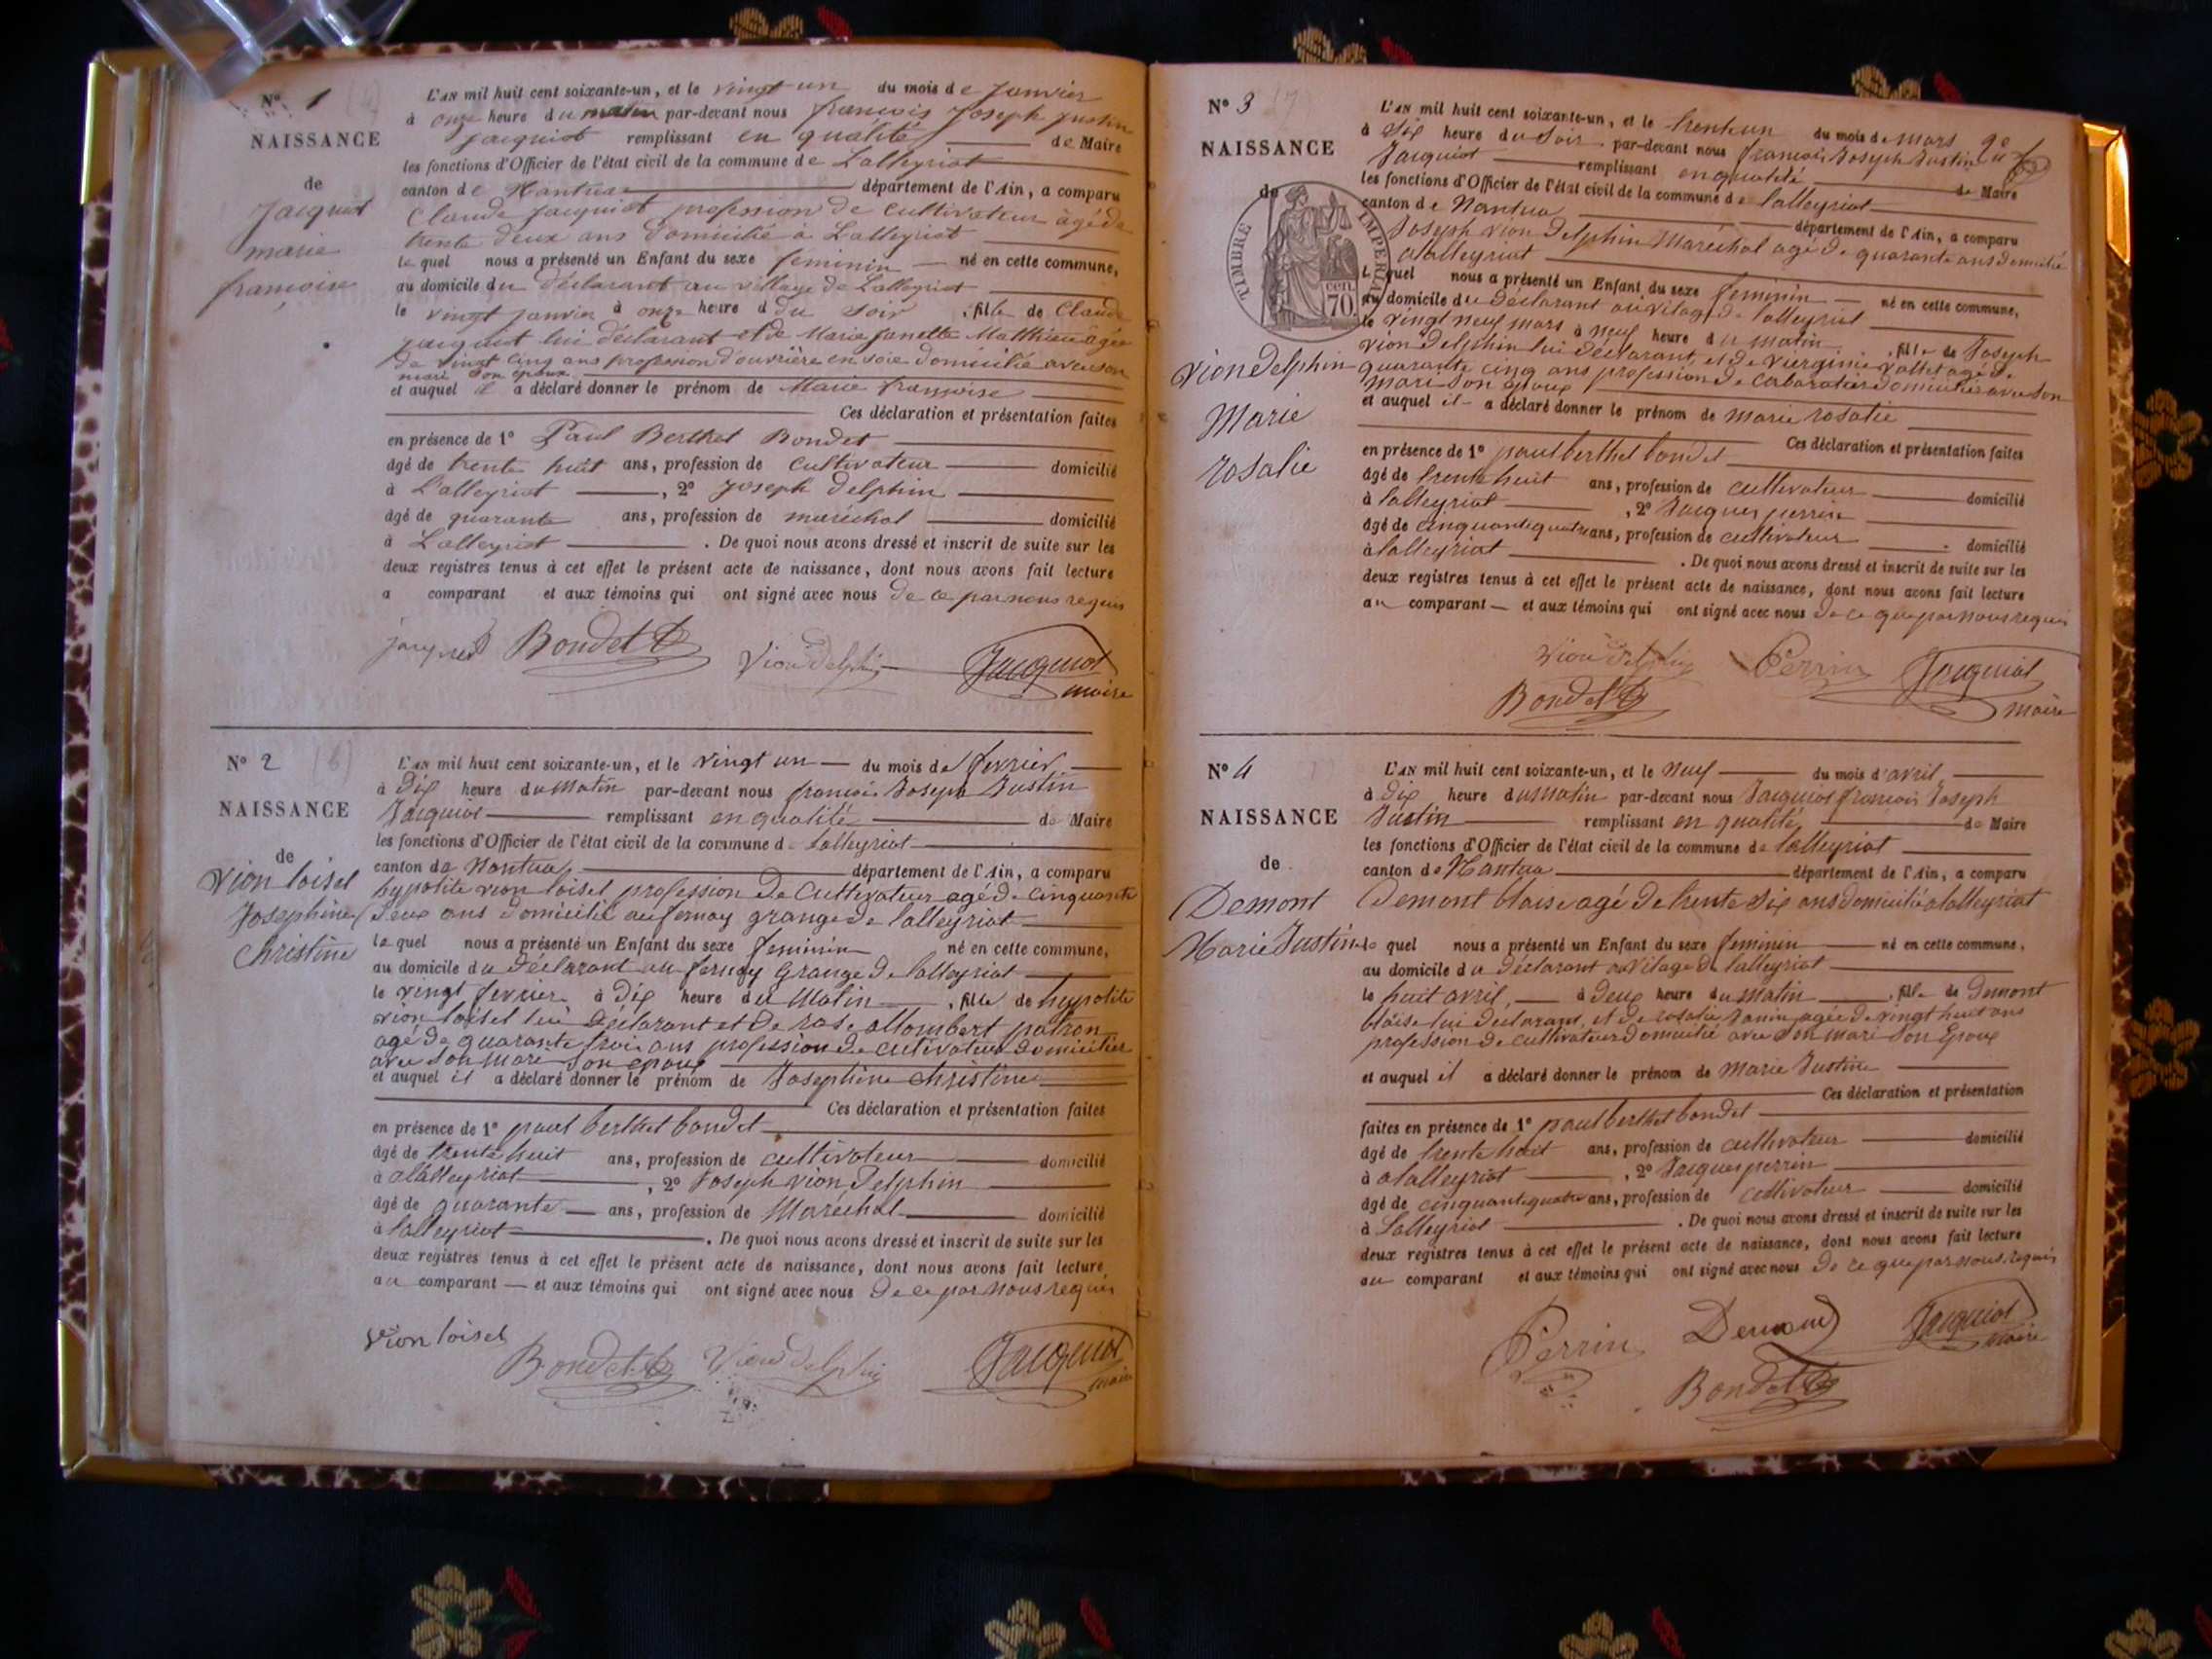 N° 1
NAISSANCE
de
Jacquiot
marie
françoise
L'AN mil huit cent soixante-un, et le vingt un du mois de Janvier
à onze heure du matin par-devant nous françois Joseph Justin
Jacquiot remplissant en qualité de Maire
les fonctions d'Officier de l'état civil de la commune de Lalleyriat
canton de Nantua département de l'Ain, a comparu
Claude Jacquiot profession de cultivateur âgé de
trente deux ans domicilié à Lalleyriat
le quel nous a présenté un Enfant du sexe feminin né en cette commune,
au domicile du déclarant au village de Lalleyriat
le vingt janvier à onze heure d du soir , fille de Claude
jacquiot lui déclarant et de Marie Janette Matthieu âgée
de vingt cinq ans profession d'ouvrière en soie domicilié avec son
mari son époux
et auquel il a déclaré donner le prénom de Marie françoise
Ces déclaration et présentation faites
en présence de 1° Paul Berthet Bondet
âgé de trente huit ans, profession de cultivateur domicilié
à Lalleyriat , 2° Joseph Delphin
âgé de quarante ans, profession de maréchal domicilié
à Lalleyriat . De quoi nous avons dressé et inscrit de suite sur les
deux registres tenus à cet effet le présent acte de naissance, dont nous avons fait lecture
a comparant et aux témoins qui ont signé avec nous de ce par nous requis
Bondet B Vion Delphin Jacquiot
maire
N° 2 (6)
NAISSANCE
de
Vion loisel
Josephine
Christine
L'AN mil huit cent soixante-un, et le vingt un du mois de fevrier
à Dix heure du Matin par-devant nous françois Joseph Justin
Jacquiot remplissant en qualité de Maire
les fonctions d'Officier de l'état civil de la commune d Lalleyriat
canton de Nantua département de l'Ain, a comparu
hypolite vion loisel profession de cultivateur agé de cinquante
deux ans domicilié au fernay grange de lalleyriat
le quel nous a présenté un Enfant du sexe feminin né en cette commune,
au domicile du déclarant au fernay Grange de lalleyriat
le vingt fevrier à Dix heure du Matin , fille de hypolite
vion loisel lui déclarant et de rose allombert patron
agé de quarante trois ans profession de cultivateur domicilier
avec son mari son epoux
et auquel il a déclaré donner le prénom de Josephine christine
Ces déclaration et présentation faites
en présence de 1° paul berthet bondet
âgé de trente huit ans, profession de cultivateur domicilié
à alalleyriat , 2° Joseph vion Delphin
âgé de quarante ans, profession de Marechal domicilié
à lalleyriat . De quoi nous avons dressé et inscrit de suite sur les
deux registres tenus à cet effet le présent acte de naissance, dont nous avons fait lecture
au comparant et aux témoins qui ont signé avec nous de ce par nous requis
Vion loisel
Bondet B Vion Delphin Jacquiot
maire
N° 3 (7)
NAISSANCE
de
TIMBRE IMPERIAL
70 cen.
Vion Delphin
Marie
rosalie
L'AN mil huit cent soixante-un, et le trente un du mois de Mars
à Six heure du Soir par-devant nous françois Joseph Justin
Jacquiot remplissant en qualité de Maire
les fonctions d'Officier de l'état civil de la commune de lalleyriat
canton de Nantua département de l'Ain, a comparu
Joseph vion Delphin Maréchal agé de quarante ans domicilié
alalleyriat
l quel nous a présenté un Enfant du sexe feminin né en cette commune,
au domicile du déclarant au vilage de lalleyriat
le vingt neuf mars à neuf heure du matin , fille de Joseph
vion Delphin lui déclarant et de viergine vallet agé de
quarante cinq ans profession de cabaratier domicilier avec son
mari son époux
et auquel il a déclaré donner le prénom de marie rosalie
Ces déclaration et présentation faites
en présence de 1° paul berthet bondet
âgé de trente huit ans, profession de cultivateur domicilié
à lalleyriat , 2° Jacques perrin
âgé de cinquante quatre ans, profession de cultivateur domicilié
à lalleyriat . De quoi nous avons dressé et inscrit de suite sur les
deux registres tenus à cet effet le présent acte de naissance, dont nous avons fait lecture
au comparant et aux témoins qui ont signé avec nous de ce que par nous requis
Vion Delphin Perrin Jacquiot
Bondet B maire
N° 4
NAISSANCE
de
Demont
Marie Justine
L'AN mil huit cent soixante-un, et le Neuf du mois d'avril
à Dix heure du Matin par-devant nous Jacquiot françois Joseph
Justin remplissant en qualité de Maire
les fonctions d'Officier de l'état civil de la commune de lalleyriat
canton de Nantua département de l'Ain, a comparu
Demont blaise agé de trente Six ans domicilié alalleyriat
le quel nous a présenté un Enfant du sexe feminin né en cette commune,
au domicile du déclarant au vilage de lalleyriat
le huit avril, à Deux heure du matin , fille de Demont
blaise lui declarant, et de rosalie Janin agée de vingt huit ans
profession de cultivateur domicilié avec son mari son Epoux
et auquel il a déclaré donner le prénom de Marie Justine
Ces déclaration et présentation
faites en présence de 1° paul berthet bondet
âgé de trente huit ans, profession de cultivateur domicilié
à alalleyriat , 2° Jacques perrin
âgé de cinquante quatre ans, profession de cultivateur domicilié
à Lalleyriat . De quoi nous avons dressé et inscrit de suite sur les
deux registres tenus à cet effet le présent acte de naissance, dont nous avons fait lecture
au comparant et aux témoins qui ont signé avec nous de ce que par nous requis
Perrin Demond Jacquiot
maire
Bondet B